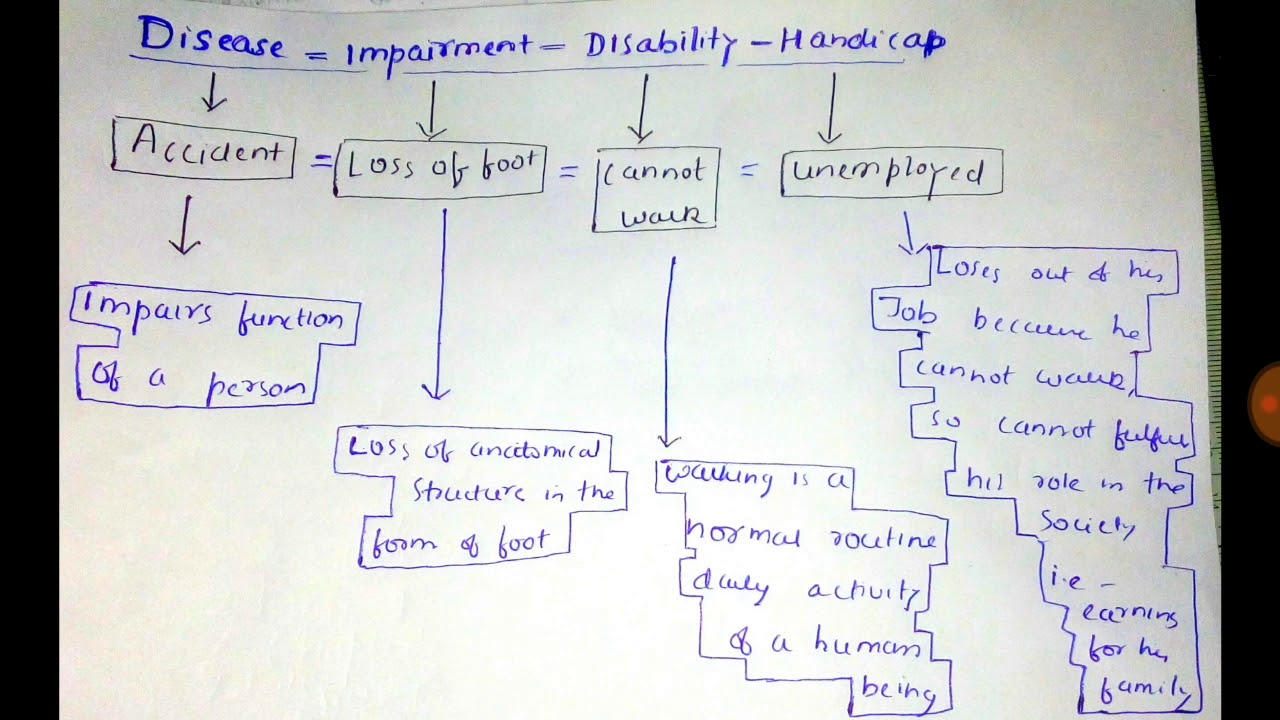 Disease = Impairment = Disability - Handicap
Accident = Loss of foot = cannot walk = unemployed
Impairs function
of a person
Loss of anatomical
structure in the
form of foot
Walking is a
normal routine
daily activity
of a human
being
Loses out of his
Job because he
cannot walk,
so cannot fulfill
his role in the
society
i.e -
earning
for his
family